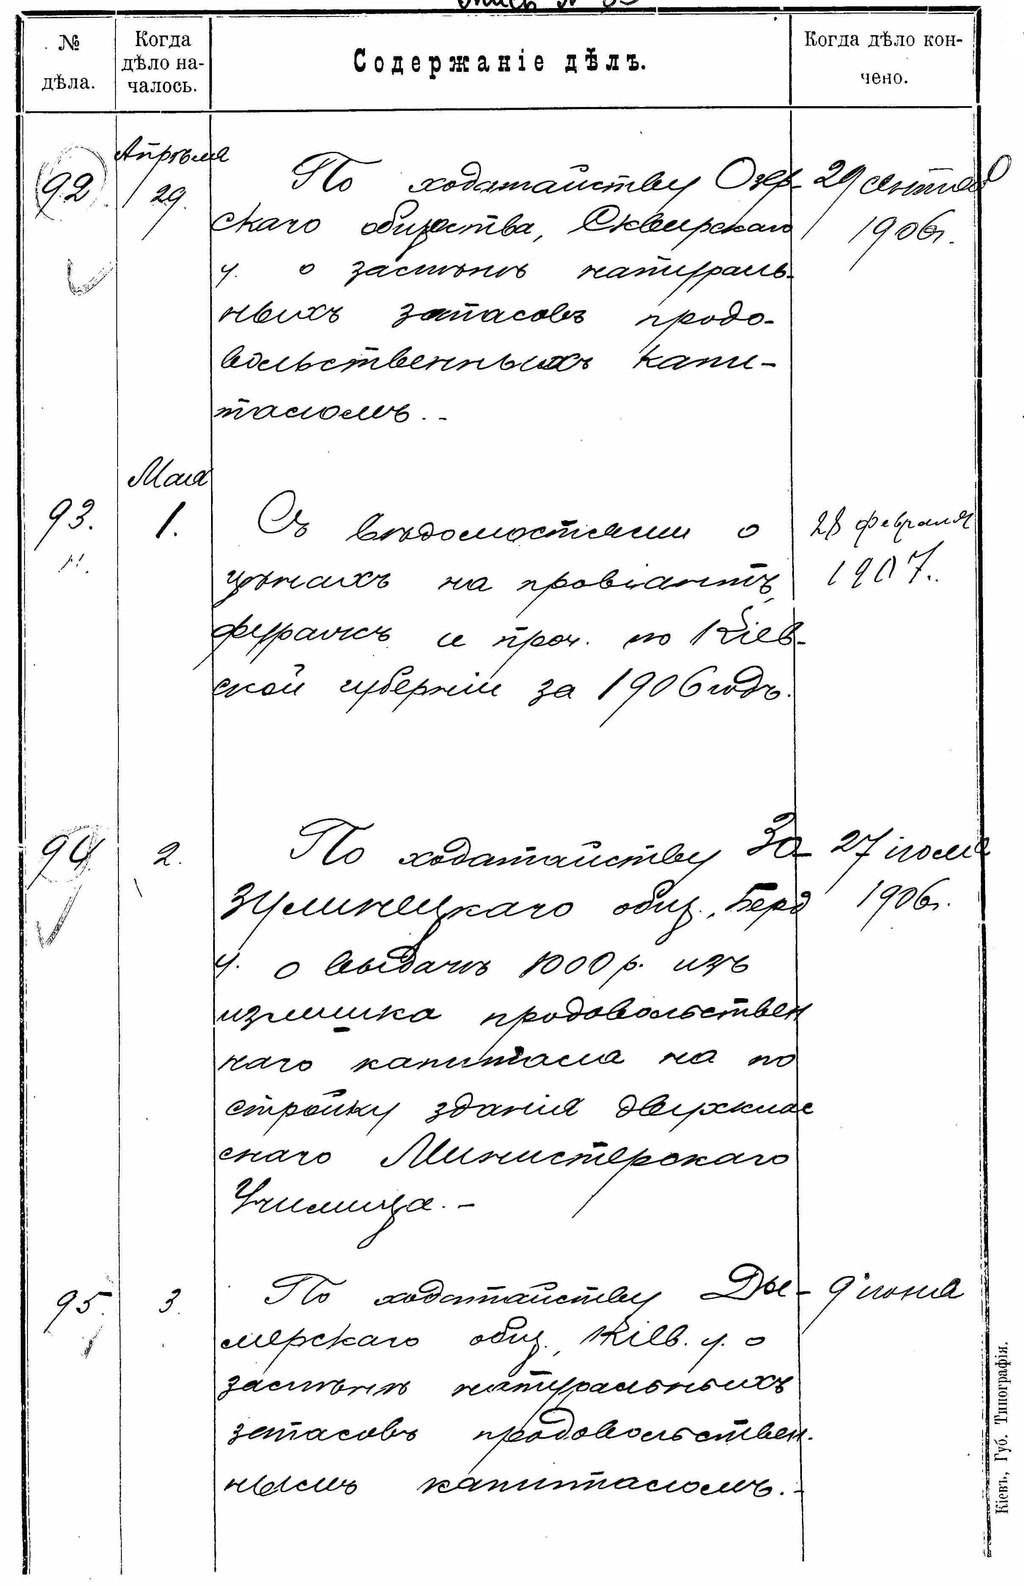 Опись № 63
№ дѣла.
Когда дѣло на-
чалось.
Содержаніе дѣлъ.
Когда дѣло кон-
чено.
92
Апрѣля
29.
По ходатайству Озер-
скаго общества, Сквирскаго
у. о замѣнѣ натураль-
ныхъ запасовъ продо-
вольственныхъ капи-
таломъ. -
29 сентяб
1906г.
93.
Мая
1.
Съ вѣдомостями о
цѣнахъ на провіантъ,
фуражъ и проч. по Кіев-
ской губерніи за 1906 годъ.
28 февраля
1907.
94
2.
По ходатайству За-
зулинецкаго общ., Берд
у. о выдачѣ 1000 р. изъ
излишка продовольствен
наго капитала на по
стройку здания двухклас
снаго Министерскаго
Училища. -
27 іюля
1906г.
95.
3.
По ходатайству Ды-
мерскаго общ., Кіев. у. о
замѣнѣ натуральныхъ
запасовъ продовольствен-
нымъ капиталомъ. -
9 іюня
Кіевъ, Губ. Типографія.